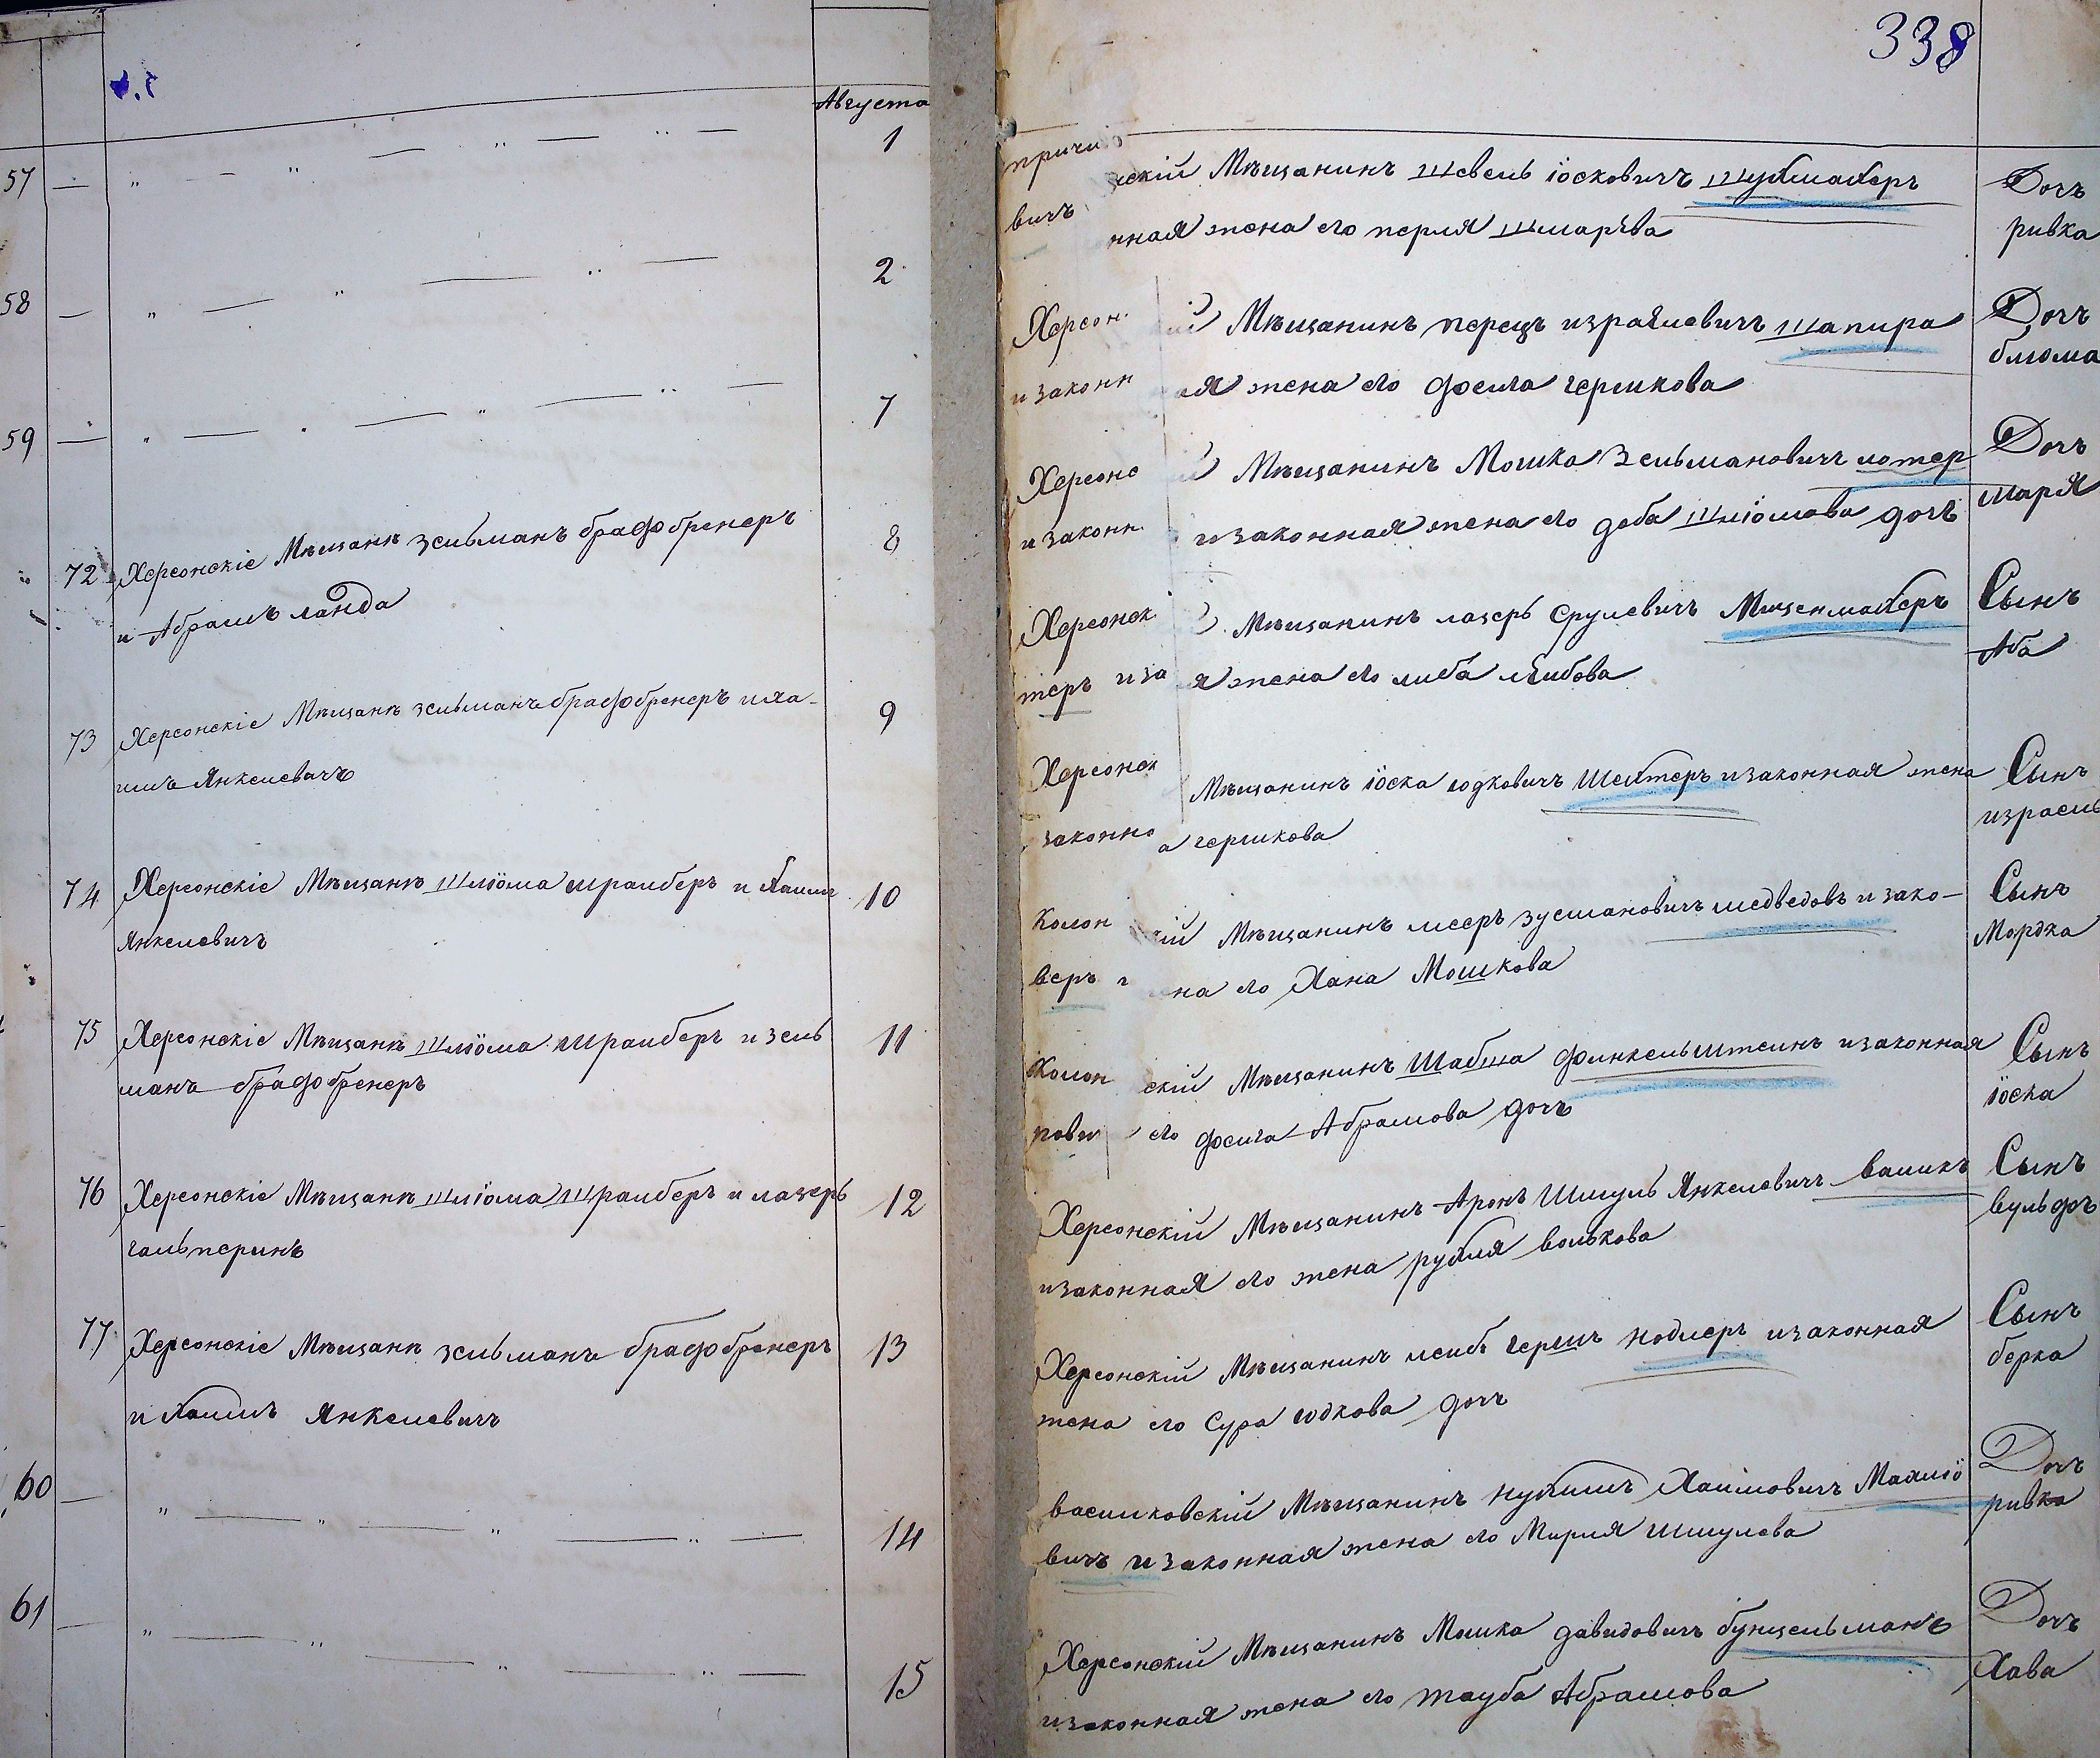 338
Августа
57 — „ — „ — „ — 1
58 — „ — „ — „ — 2
59 — „ — „ — „ — 7
72 Херсонскіе Мѣщанѣ зельманъ брафбренеръ 8
и Абрамъ ланда
73 Херсонскіе Мѣщанѣ зельманъ брафбренеръ и ха- 9
имъ Янкелевичъ
74 Херсонскіе Мѣщанѣ шліома шрайберъ и Хаим 10
Янкелевичъ
75 Херсонскіе Мѣщанѣ шліома шрайберъ и зель 11
манъ брафбренеръ
76 Херсонскіе Мѣщанѣ шліома шрайберъ и лазеръ 12
гальперинъ
77 Херсонскіе Мѣщанѣ зельманъ брафбренеръ 13
и Хаимъ Янкелевичъ
60 — „ — „ — „ — „ — 14
61 — „ — „ — „ — „ — 15
причи скій Мѣщанинъ шевель іосковичъ шухмахеръ Дочъ
вичъ ная жена его перля шмарѣва ривка
Херсон ій Мѣщанинъ перецъ израилевичъ шапира Дочъ
и законн ая жена его фейга гершкова блюма
Херсонс Мѣщанинъ Мошка Зельмановичъ мотер Дочъ
и законн и законная жена его деба шліомова дочъ марія
Херсонск Мѣщанинъ лазеръ срулевичъ Миценмахеръ Сынъ
теръ и за я жена его либа лейбова Аба
Херсонск Мѣщанинъ іоска юдковичъ Шехтеръ и законная жена Сынъ
законно а гершкова израель
Колон кій Мѣщанинъ мееръ зусмановичъ медведовъ и зако- Сынъ
веръ ена его Хана Мошкова Мордка
Колон скій Мѣщанинъ Шабша финкельштеинъ и законная Сынъ
пови его фейга Абрамова дочъ іоска
Херсонскій Мѣщанинъ Аронъ Шмуль Янкелевичъ ваникъ Сынъ
и законная его жена рухля волькова вульфъ
Херсонскій Мѣщанинъ леибъ гершъ нодлеръ и законная Сынъ
жена его Сура юдкова дочъ берка
василковскій Мѣщанинъ нухимъ Хаимовичъ Махліо Дочъ
вичъ и законная жена его Мирля Шмулева ривка
Херсонскій Мѣщанинъ Мошка давидовичъ бунцельманъ Дочъ
и законная жена его тауба Абрамова Хава